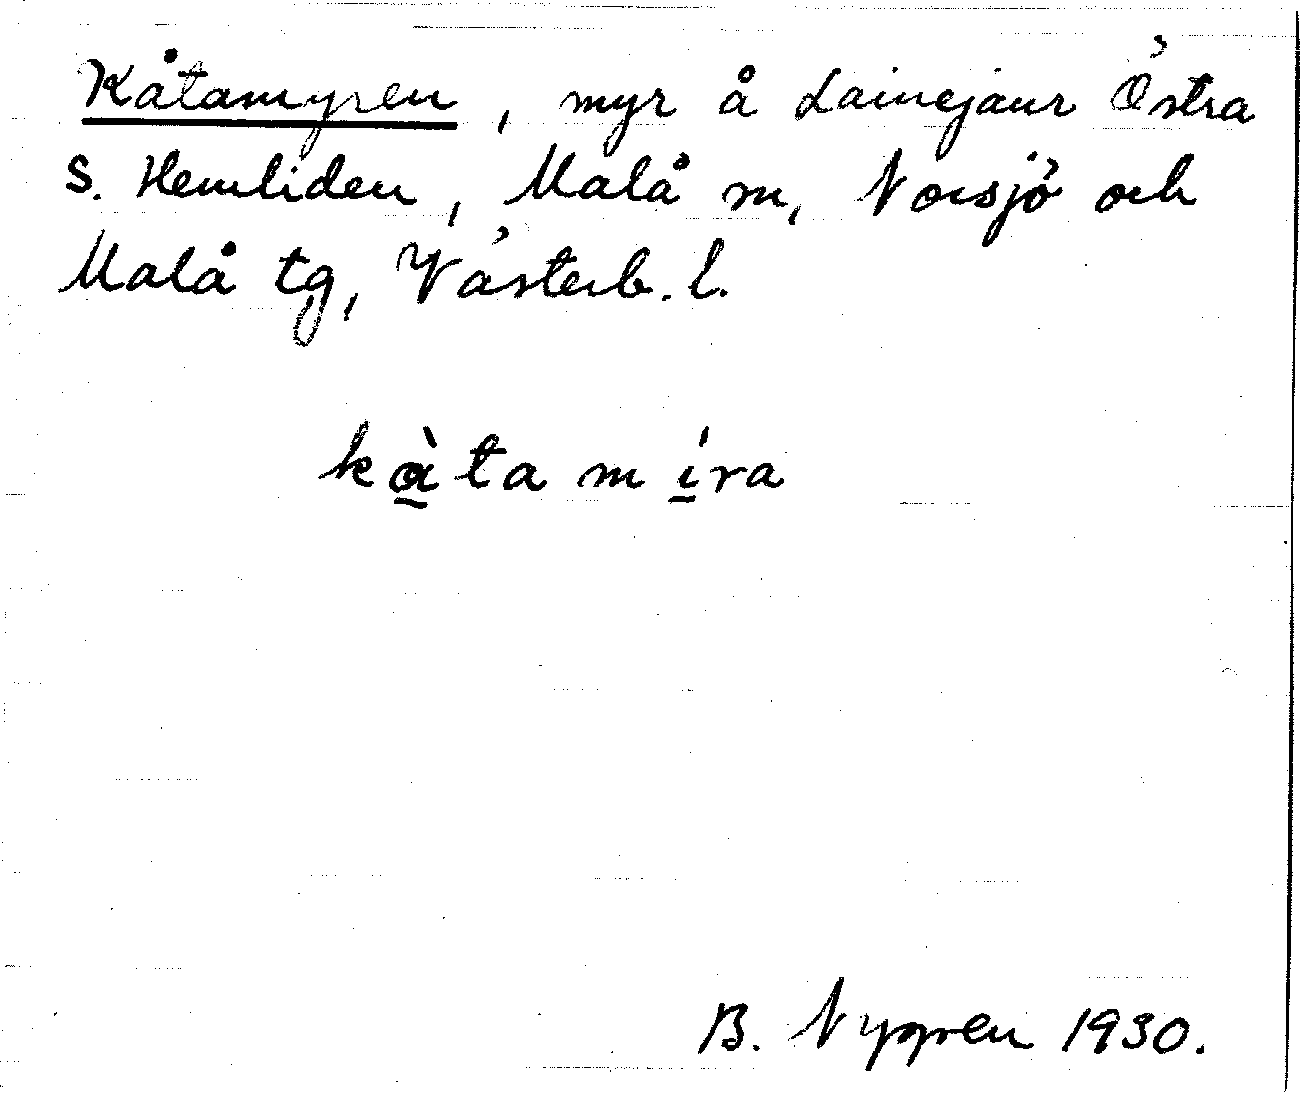 Kåtamyren, myr å Lainejaur Östra
s. Hemliden, Malå m, Norsjö och
Malå tg, Västerb. l.
kàta míra
B. Nygren 1930.